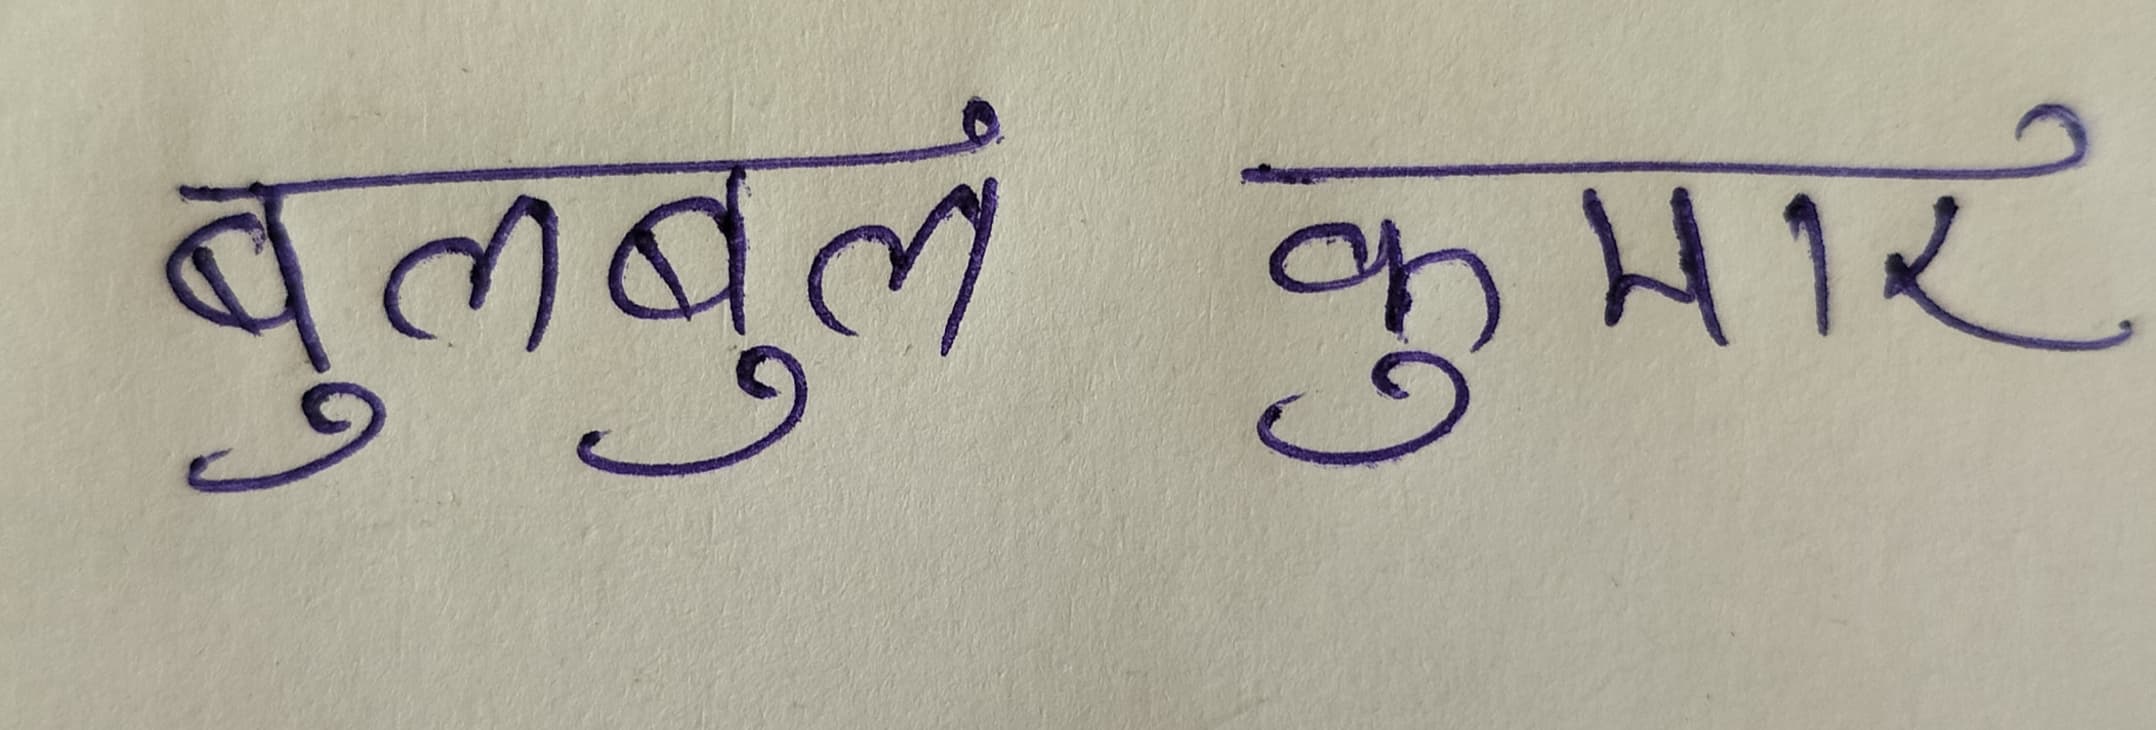 बुलबुल कुमार